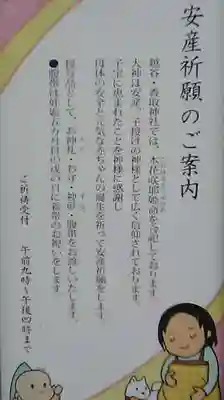 安産祈願のご案内
越谷・香取神社では、木花咲耶姫命を合祀しております。
大神は安産、子授けの神様として広く信仰されております。
子宝に恵まれたことを神様に感謝し
母体の安全と元気な赤ちゃんの誕生を祈って安産祈願をします。
●授与品として、お神札・お守・神米・腹帯をお渡しいたします。
●腹帯は妊娠五ヵ月目の戌の日に着帯のお祝いをします。
ご祈祷受付 午前九時~午後四時まで